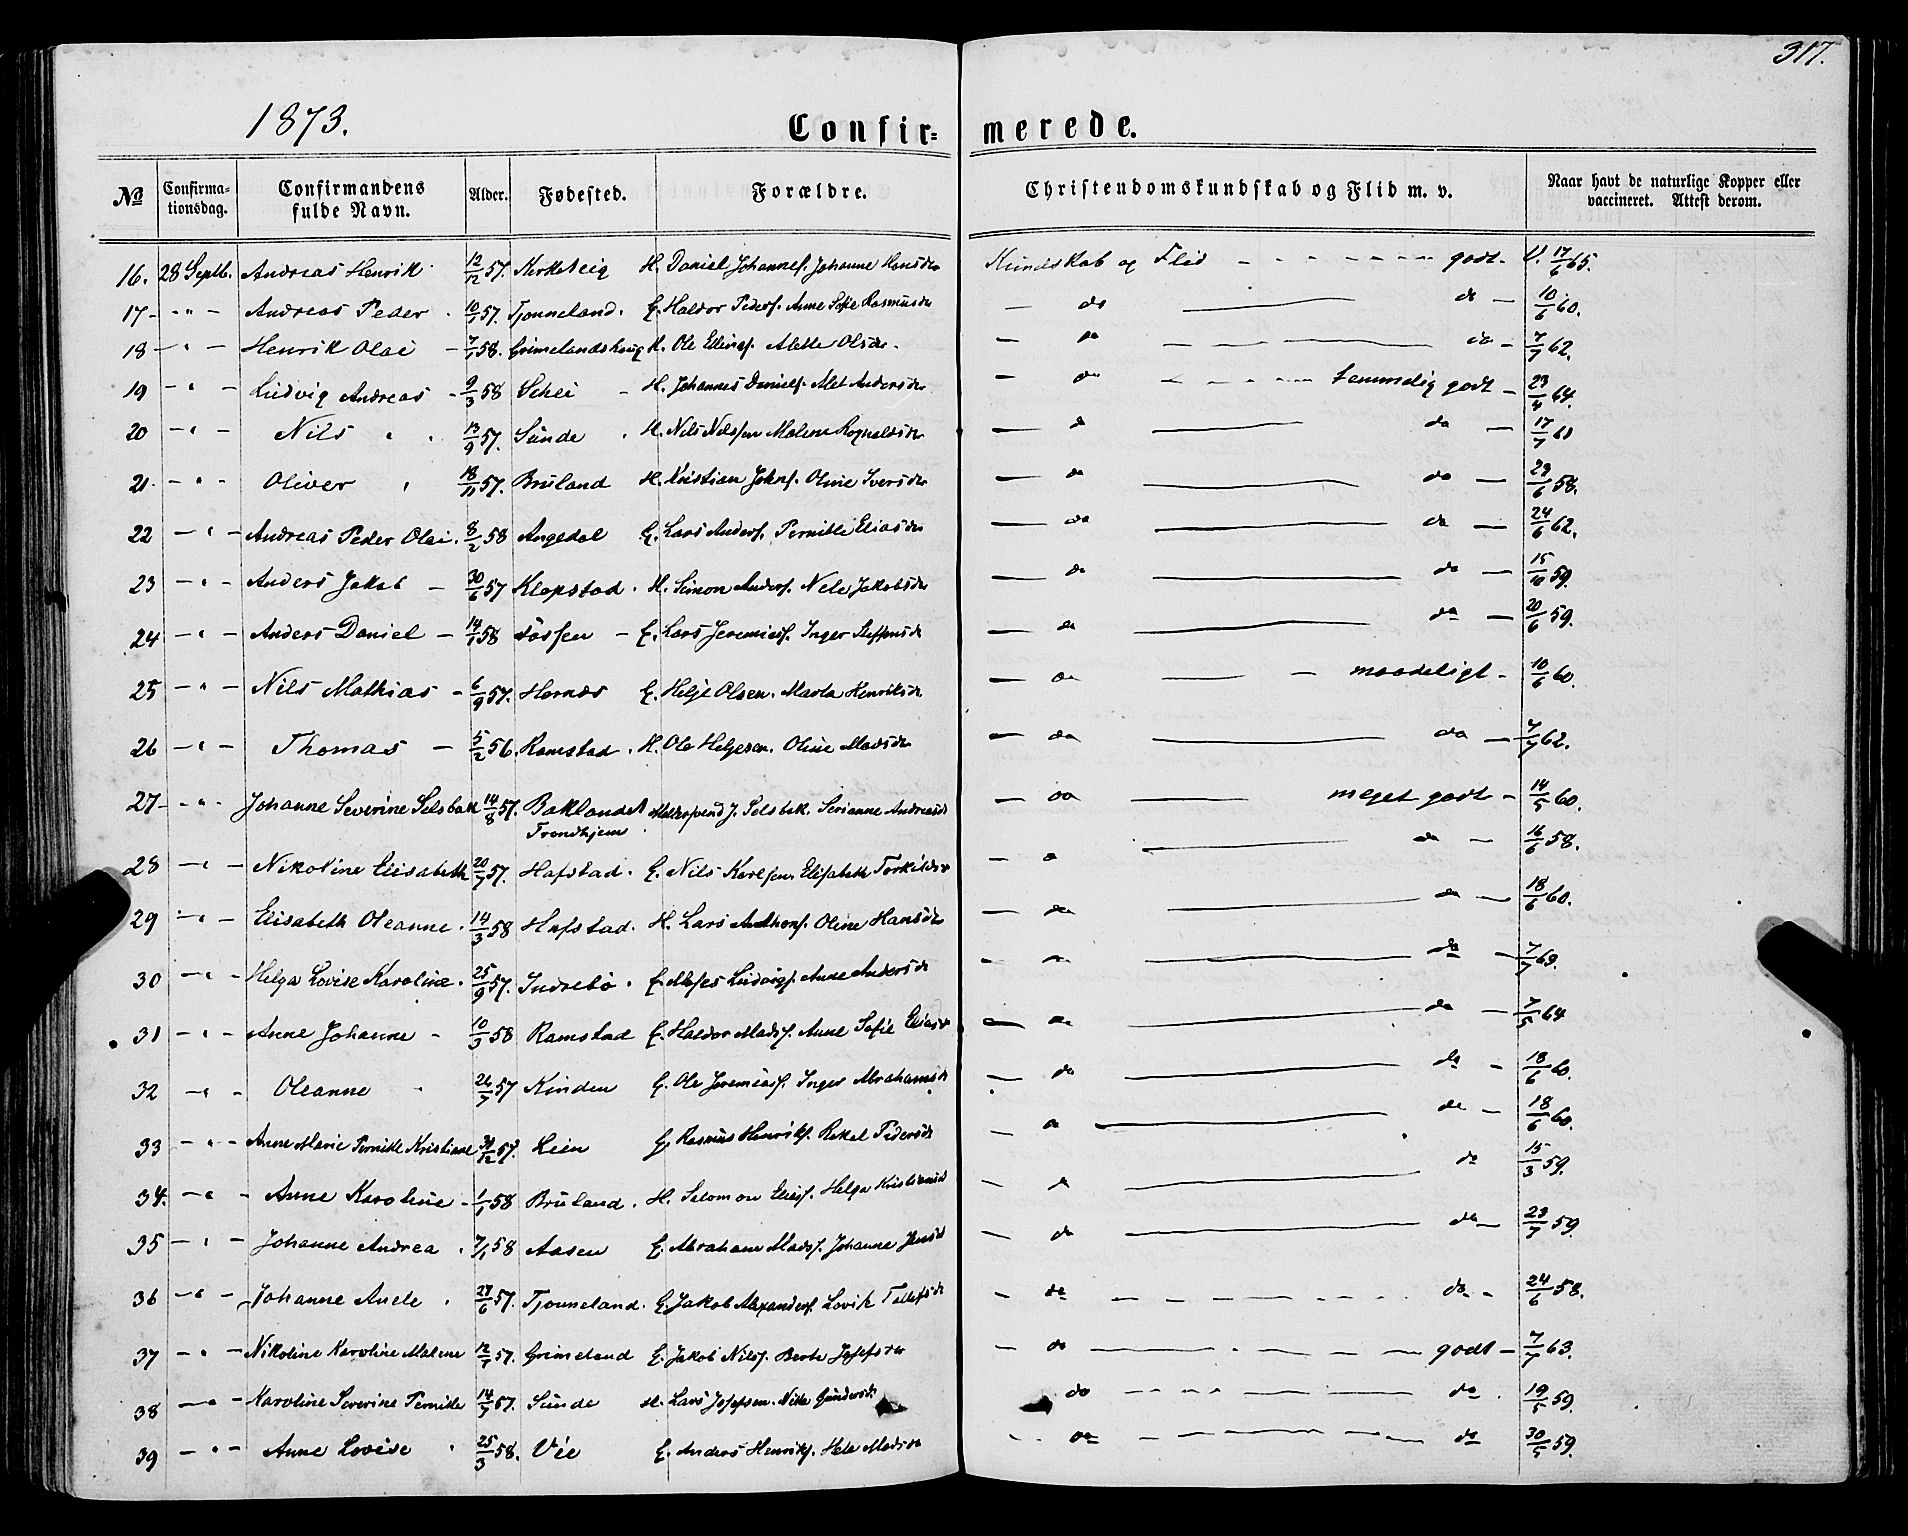 317.
1873.
Confir= merede.
No Confirma=tionsdag. Confirmandens fulde Navn. Alder. Fødested. Forældre. Christendomskundskab og Flid m. v. Naar havt de naturlige Kopper eller vaccineret. Attest derom.
16. 28 Septb. Andreas Henrik 12/12 57. H. Daniel Johannes. Johanne Hansdr Kundskab og Flid - - - - godt. V. 17/6 65.
17 - " - Andreas Peder 57. Tjonneland. E. Haldor Peders. Anne Sofie Rasmusdr — do — do — 10/6 60.
18 - " - Henrik Olai 58. Grimelandshaug H. Ole Ellings. Alette Olsdr. — do — do — 7/7 62.
19 - " - Ludvig Andreas 9/3 58 Schei H. Johannes Daniels. Alet Andersdr — do - - - temmelig godt — 23/4 64.
20 - " - Nils 13/9 57. Sunde H. Nils Nilssen Malene Rognaldsdr — do — do — 17/7
21 - " - Oliver 18/11 57. Bruland H. Kristian Johns. Oline Iversdr — do — do — 29/6 58.
22 - " - Andreas Peder Olai. 8/2 58 Angedal E. Lars Anders. Pernille Eliasdr — do — do — 24/6 62.
23 - " - Anders Jakob — 30/6 57 Klopstad. H. Simon Anders. Nele Jakobsdr — do — do — 15/10 59.
24 - " - Anders Daniel — 14/1 58 E. Lars Jeremias. Inger Steffensdr — do — do — 20/6 59.
25 - " - Nils Mathias - 6/9 57. Hornæs E. Helje Olsen. Marta Henriksdr — do — maadeligt - 10/6 60.
26 - " - Thomas — 5/2 56. Ramstad. H. Ole Helgesen. Oline Madsdr — do — do — 7/7 62.
27 - " - Johanne Severine Selsbak 14/8 57. Baklandet Trondhjem J. Selsbak. Serianne Andreasdr — do — meget godt — 14/5 60.
28 - " - Nikoline Elisabeth 20/7 57. Hafstad. E. Nils Karlsen Elisabeth Torkildsdr — do — do — 16/6 58.
29 - " - Elisabeth Oleanne. 14/3 58 Hafstad. H. Lars Anthons. Oline Hansdr — do — do — 18/6 60.
30 - " - Helga Lovise Karoline. 25/9 57. Indrebø. E. Moses Ludvigs. Anne Andersdr — do — do — 7/7
31 - " - Anne Johanne - 10/3 58 Ramstad E. Haldor Mads. Anne Sofie Eliasdr — do — do — 7/5 64
32 - " - Oleanne 26/7 57 Kinden E. Ole Jeremias. Inger Abrahamsdr — do — do — 18/6 60.
33 - " - Anne Marie Pernille Kristiane 57. Lein E. Rasmus Henriks. Rakel Pedersdr — do — do — 18/6 60.
34. - " - Anne Karoline - 1/1 58 Bruland. H. Salomon Elias. Helga Kristiansd — do — do 15/3 59.
35 - " - Johanne Andrea. 7/1 58 Aasen E. Abraham Mads. Johanne Jensd — do — do — 23/7 59.
36 - " - Johanne Anele. 57. Tjonneland. E. Jakob Alexanders. Lovise — do — do - 24/6 58.
37 - " - Nikoline Karoline Malene 12/7 57. Grimeland E. Jakob Nils. Berte Josefsdr — do — godt — 7/7 63.
38 - " - Karoline Severine Pernille 14/7 57. Sunde H. Lars Josefsen. Gundersdr do — do. 19/5 59.
39 - " - Anne Lovise 25/3 58. Vie E. Anders Henriks. Madsdr do — do 30/5 59.